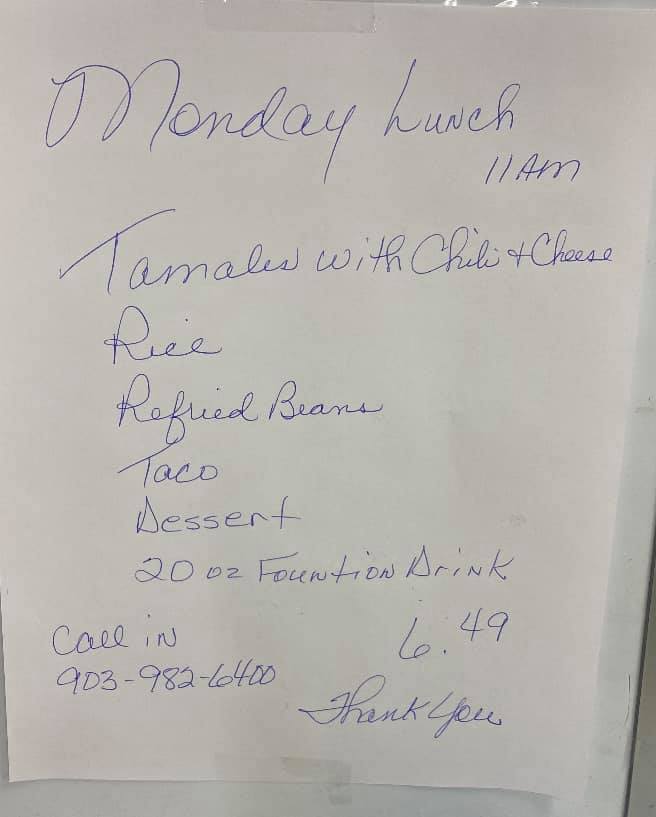 Monday Lunch
11 AM
Tamales with Chili + Cheese
Rice
Refried Beans
Taco
Dessert
20 oz Fountion Drink
Call in
6.49
903-982-6400
Thank You